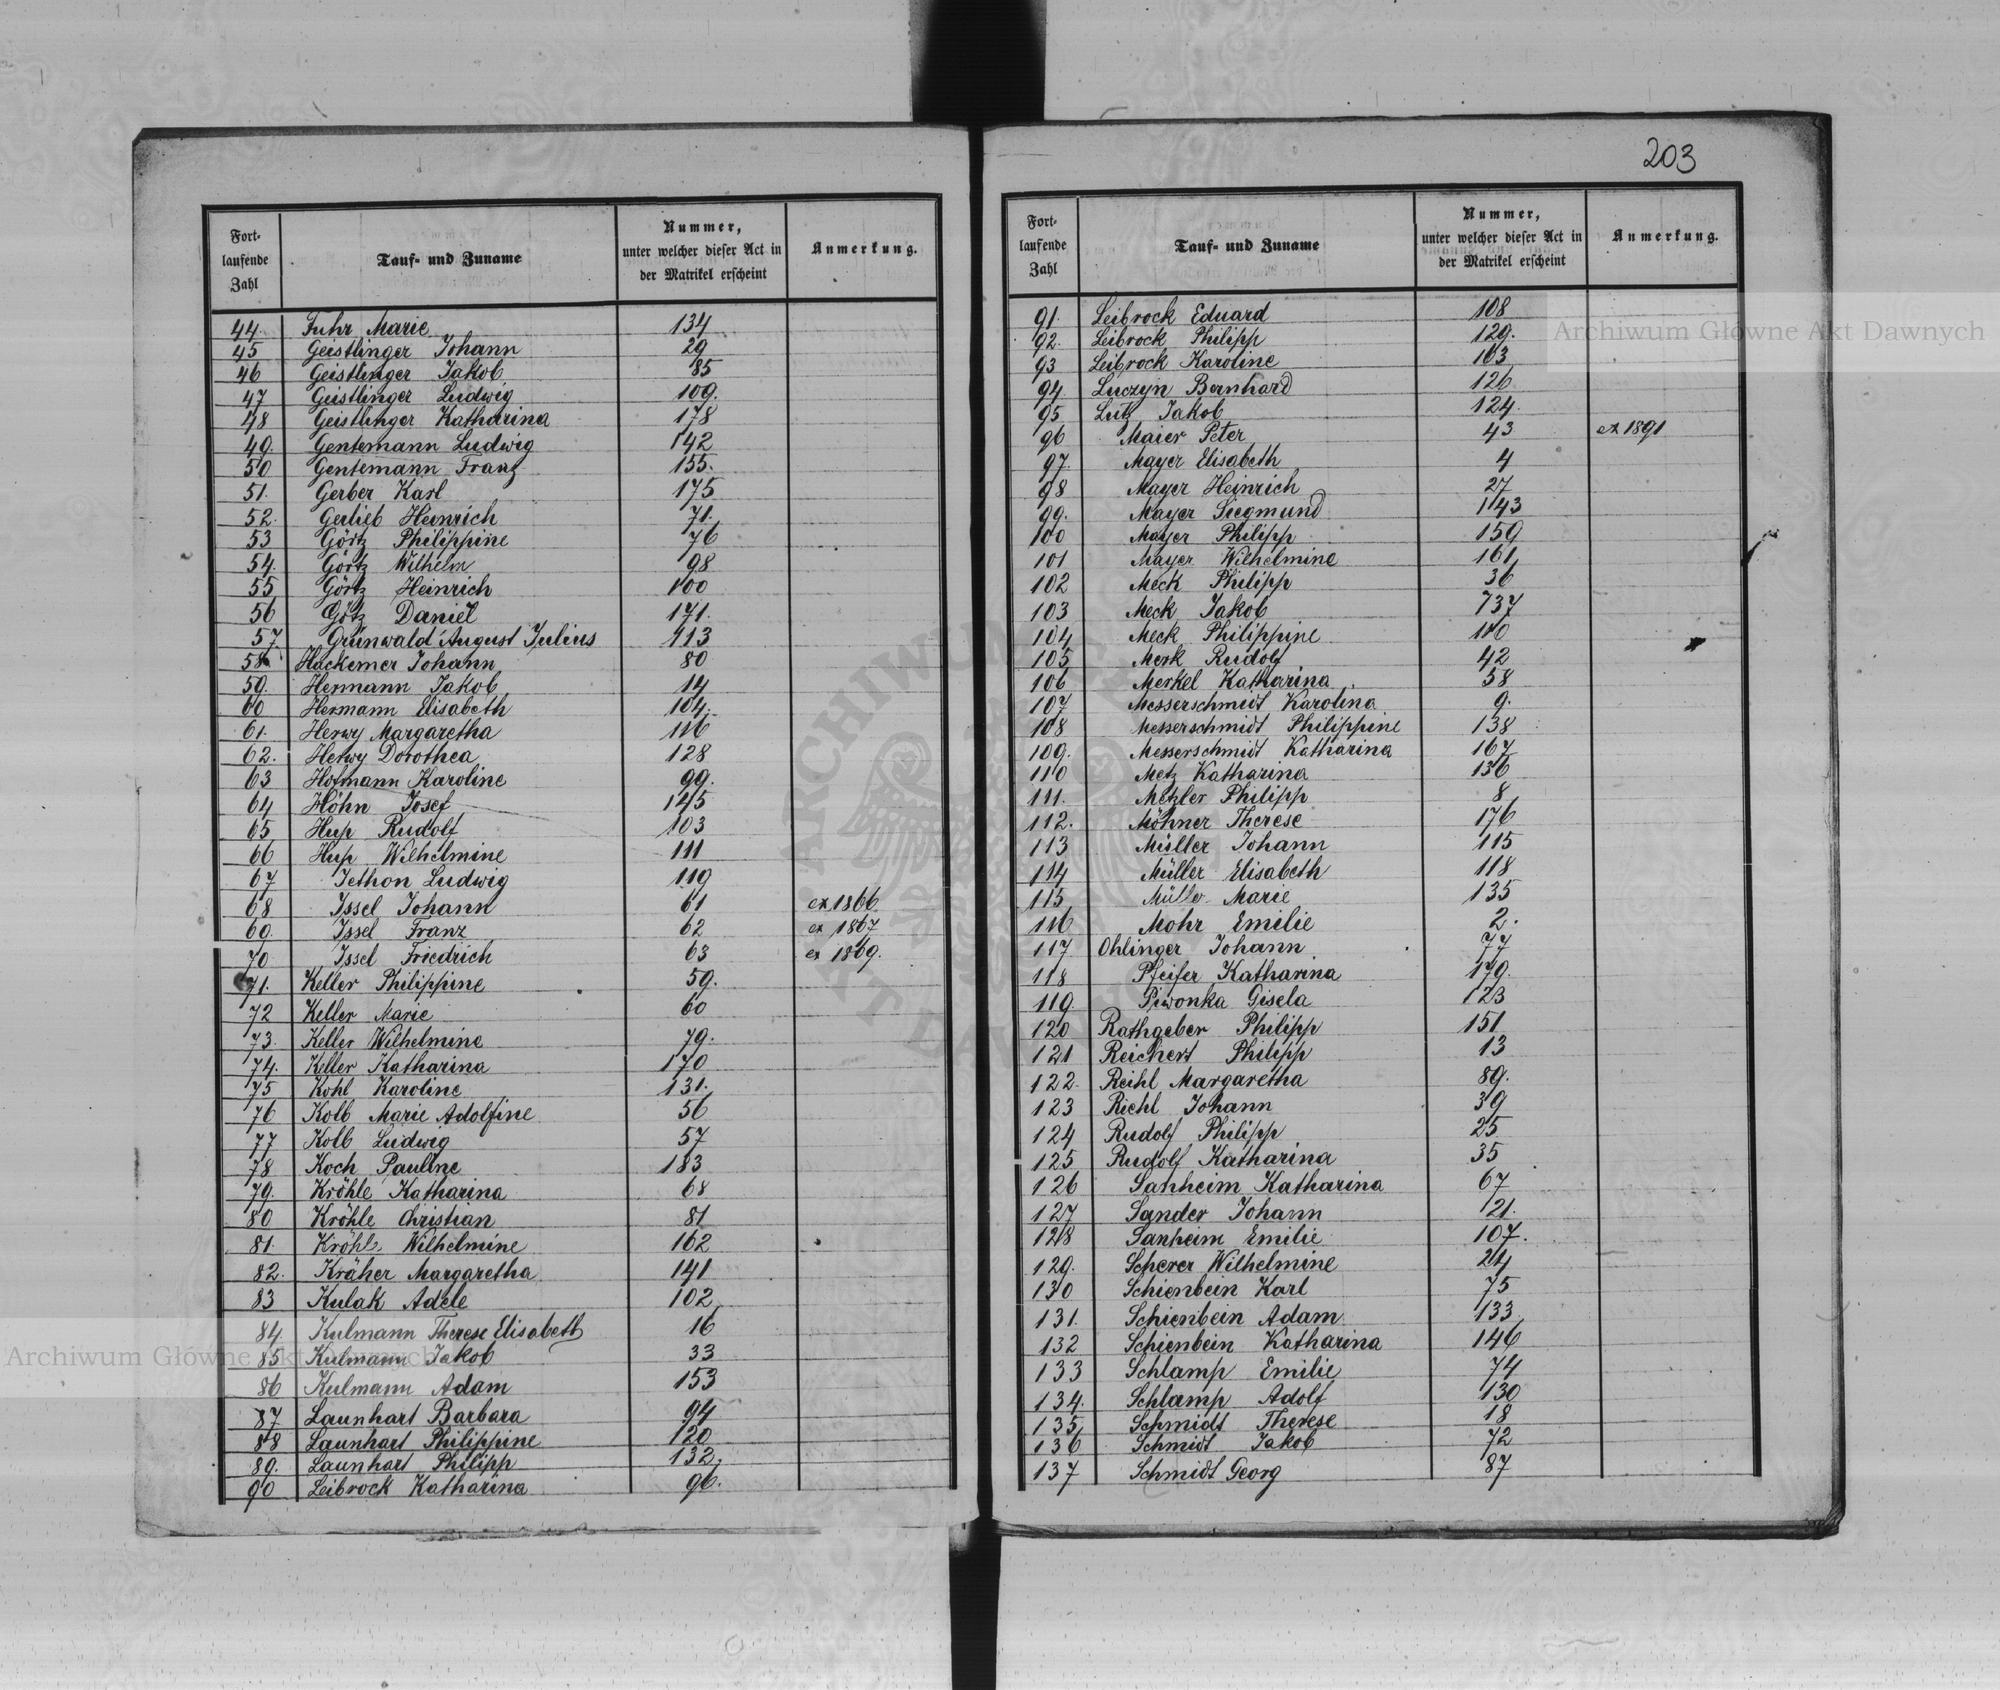 203
Fort-
laufende
Zahl
Tauf- und Zuname
Nummer,
unter welcher dieser Act in
der Matrikel erscheint
Anmerkung.
44. Fuhr Marie 134
45 Geistlinger Johann 29
46 Geistlinger Jakob 85
47 Geistlinger Ludwig 109.
48 Geistlinger Katharina 178
49. Gentemann Ludwig 142
50 Gentemann Franz 155.
51. Gerber Karl 175
52. Gerlieb Heinrich 71.
53 Görtz Philippine 76
54. Görtz Wilhelm 98
55 Görtz Heinrich 100
56 Götz Daniel 171.
57 Grünwald August Julius 113
58 Hackemer Johann 80
59. Hermann Jakob 14
60 Hermann Elisabeth 104.
61. Herwy Margaretha 116
62. Herwy Dorothea 128
63 Hofmann Karoline 99.
64 Höhn Josef 145
65 Hup Rudolf 103
66 Hup Wilhelmine 111
67 Jethon Ludwig 119
68 Issel Johann 61 ex 1866
69. Issel Franz 62 ex 1867
70 Issel Friedrich 63 ex 1869.
71. Keller Philippine 59.
72 Keller Marie 60
73. Keller Wilhelmine 79.
74. Keller Katharina 170
75 Kohl Karoline 131.
76 Kolb Marie Adolfine 56
77 Kolb Ludwig 57
78 Koch Pauline 183
79. Kröhle Katharina 68
80 Kröhle Christian 81
81. Kröhle Wilhelmine 162
82. Kräher Margaretha 141
83 Kulak Adele 102
84. Kulmann Therese Elisabeth 16
85 Kulmann Jakob 33
86 Kulmann Adam 153
87 Launhart Barbara 94
88 Launhart Philippine 120
89. Launhart Philipp 132.
90 Leibrock Katharina 96.
Fort-
laufende
Zahl
Tauf- und Zuname
Nummer,
unter welcher dieser Act in
der Matrikel erscheint
Anmerkung.
91. Leibrock Eduard 108
92. Leibrock Philipp 129.
93 Leibrock Karoline 163
94. Luczyn Bernhard 126
95 Lutz Jakob 124.
96 Maier Peter 43 ex 1891
97. Mayer Elisabeth 4
98 Mayer Heinrich 27
99. Mayer Siegmund 143
100 Mayer Philipp 159
101 Mayer Wilhelmine 161
102 Meck Philipp 36
103 Meck Jakob 737
104 Meck Philippine 110
105 Merk Rudolf 42
106 Merkel Katharina 58
107 Messerschmidt Karolina 9.
108 Messerschmidt Philippine 138
109. Messerschmidt Katharina 167
110 Metz Katharina 136
111. Metzler Philipp 8
112. Möhner Therese 176
113 Müller Johann 115
114 Müller Elisabeth 118
115 Müller Marie 135
116 Mohr Emilie 2.
117 Ohlinger Johann 77
118 Pfeifer Katharina 179.
119 Piwonka Gisela 123
120 Rathgeber Philipp 151
121 Reichert Philipp 13
122. Reihl Margaretha 89.
123 Riehl Johann 39
124 Rudolf Philipp 25
125 Rudolf Katharina 35
126 Sanheim Katharina 67
127 Sander Johann 121.
128 Sanheim Emilie 107.
129. Scherer Wilhelmine 24
130 Schienbein Karl 75
131. Schienbein Adam 133
132 Schienbein Katharina 146
133 Schlamp Emilie 74
134. Schlamp Adolf 130
135 Schmidt Therese 18
136 Schmidt Jakob 72
137 Schmidt Georg 87
Archiwum Główne Akt Dawnych
Archiwum Główne Akt Dawnych